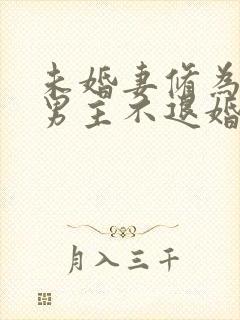 未婚妻脩為
男主不退婚
月入三千